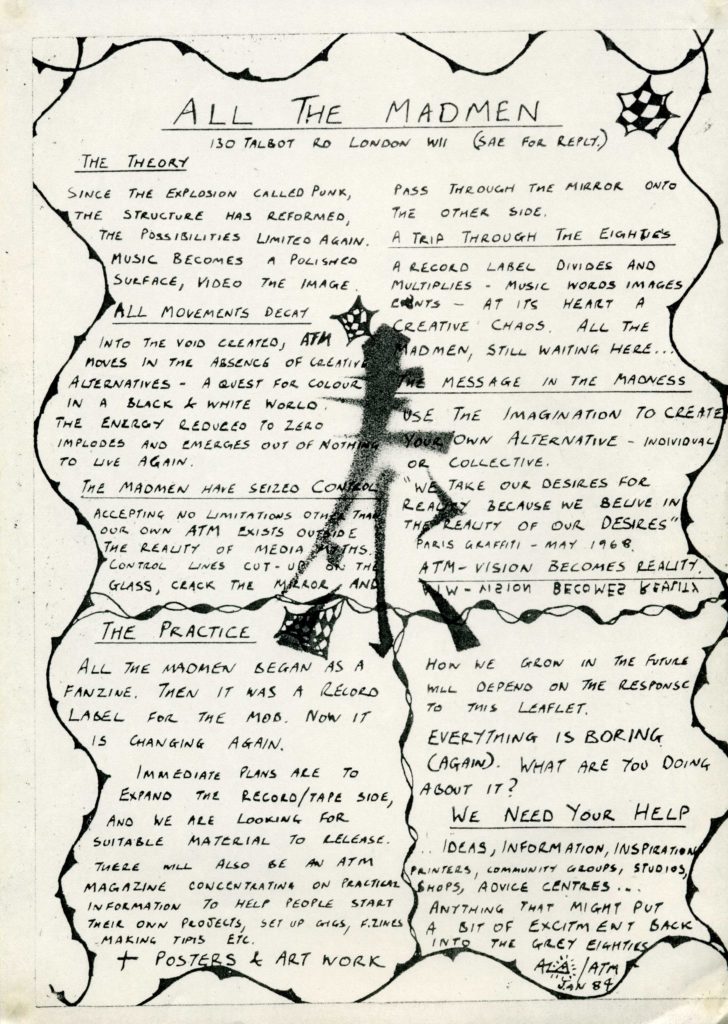 ALL THE MADMEN
130 TALBOT RD LONDON W11 (SAE FOR REPLY.)
THE THEORY
SINCE THE EXPLOSION CALLED PUNK,
THE STRUCTURE HAS REFORMED,
THE POSSIBILITIES LIMITED AGAIN.
MUSIC BECOMES A POLISHED
SURFACE, VIDEO THE IMAGE.
ALL MOVEMENTS DECAY
INTO THE VOID CREATED, ATM
MOVES IN THE ABSENCE OF CREATIVE
ALTERNATIVES - A QUEST FOR COLOUR
IN A BLACK & WHITE WORLD.
THE ENERGY REDUCED TO ZERO
IMPLODES AND EMERGES OUT OF NOTHING
TO LIVE AGAIN.
THE MADMEN HAVE SEIZED CONTROL
ACCEPTING NO LIMITATIONS OTHER THAN
OUR OWN ATM EXISTS OUTSIDE
THE REALITY OF MEDIA MYTHS.
CONTROL LINES CUT-UP ON THE
GLASS, CRACK THE MIRROR, AND
PASS THROUGH THE MIRROR ONTO
THE OTHER SIDE.
A TRIP THROUGH THE EIGHTIES
A RECORD LABEL DIVIDES AND
MULTIPLIES - MUSIC WORDS IMAGES
EVENTS - AT ITS HEART A
CREATIVE CHAOS. ALL THE
MADMEN, STILL WAITING HERE...
THE MESSAGE IN THE MADNESS
USE THE IMAGINATION TO CREATE
YOUR OWN ALTERNATIVE - INDIVIDUAL
OR COLLECTIVE.
"WE TAKE OUR DESIRES FOR
REALITY BECAUSE WE BELIVE IN
THE REALITY OF OUR DESIRES"
PARIS GRAFFITI - MAY 1968.
ATM - VISION BECOMES REALITY.
ATM - VISION BECOMES REALITY
THE PRACTICE
ALL THE MADMEN BEGAN AS A
FANZINE. THEN IT WAS A RECORD
LABEL FOR THE MOB. NOW IT
IS CHANGING AGAIN.
IMMEDIATE PLANS ARE TO
EXPAND THE RECORD/TAPE SIDE,
AND WE ARE LOOKING FOR
SUITABLE MATERIAL TO RELEASE.
THERE WILL ALSO BE AN ATM
MAGAZINE CONCENTRATING ON PRACTICAL
INFORMATION TO HELP PEOPLE START
THEIR OWN PROJECTS, SET UP GIGS, F.ZINES
MAKING TIPIS ETC.
+ POSTERS & ART WORK
HOW WE GROW IN THE FUTURE
WILL DEPEND ON THE RESPONSE
TO THIS LEAFLET.
EVERYTHING IS BORING
(AGAIN). WHAT ARE YOU DOING
ABOUT IT?
WE NEED YOUR HELP
.. IDEAS, INFORMATION, INSPIRATION
PRINTERS, COMMUNITY GROUPS, STUDIOS,
SHOPS, ADVICE CENTRES...
ANYTHING THAT MIGHT PUT
A BIT OF EXCITMENT BACK
INTO THE GREY EIGHTIES
/ATM
JAN 84